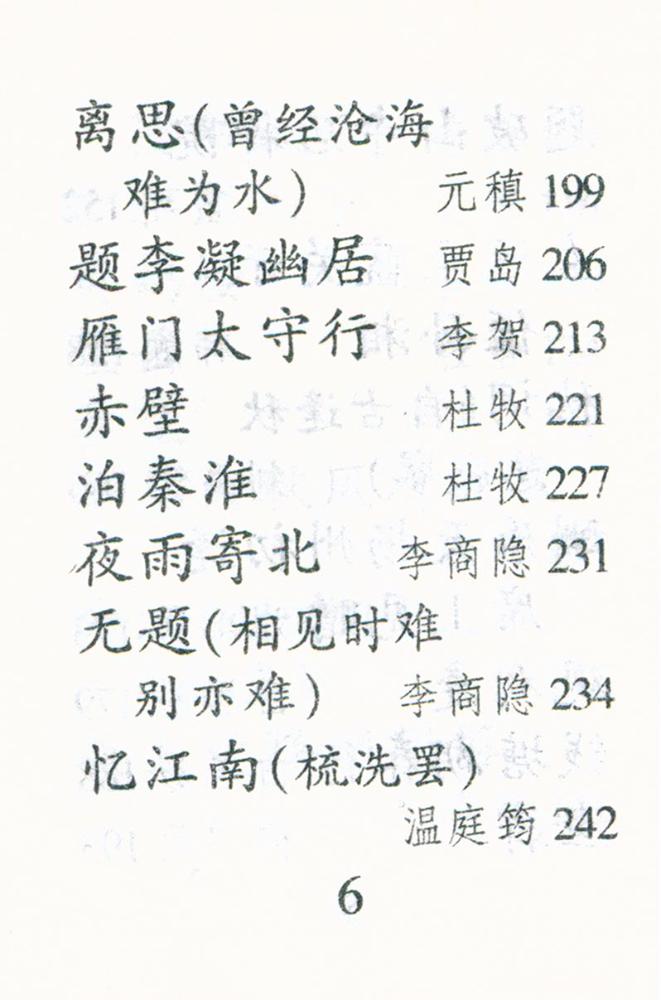 离思(曾经沧海
难为水) 元稹 199
题李凝幽居 贾岛 206
雁门太守行 李贺 213
赤壁 杜牧 221
泊秦淮 杜牧 227
夜雨寄北 李商隐 231
无题(相见时难
别亦难) 李商隐 234
忆江南(梳洗罢)
温庭筠 242
6